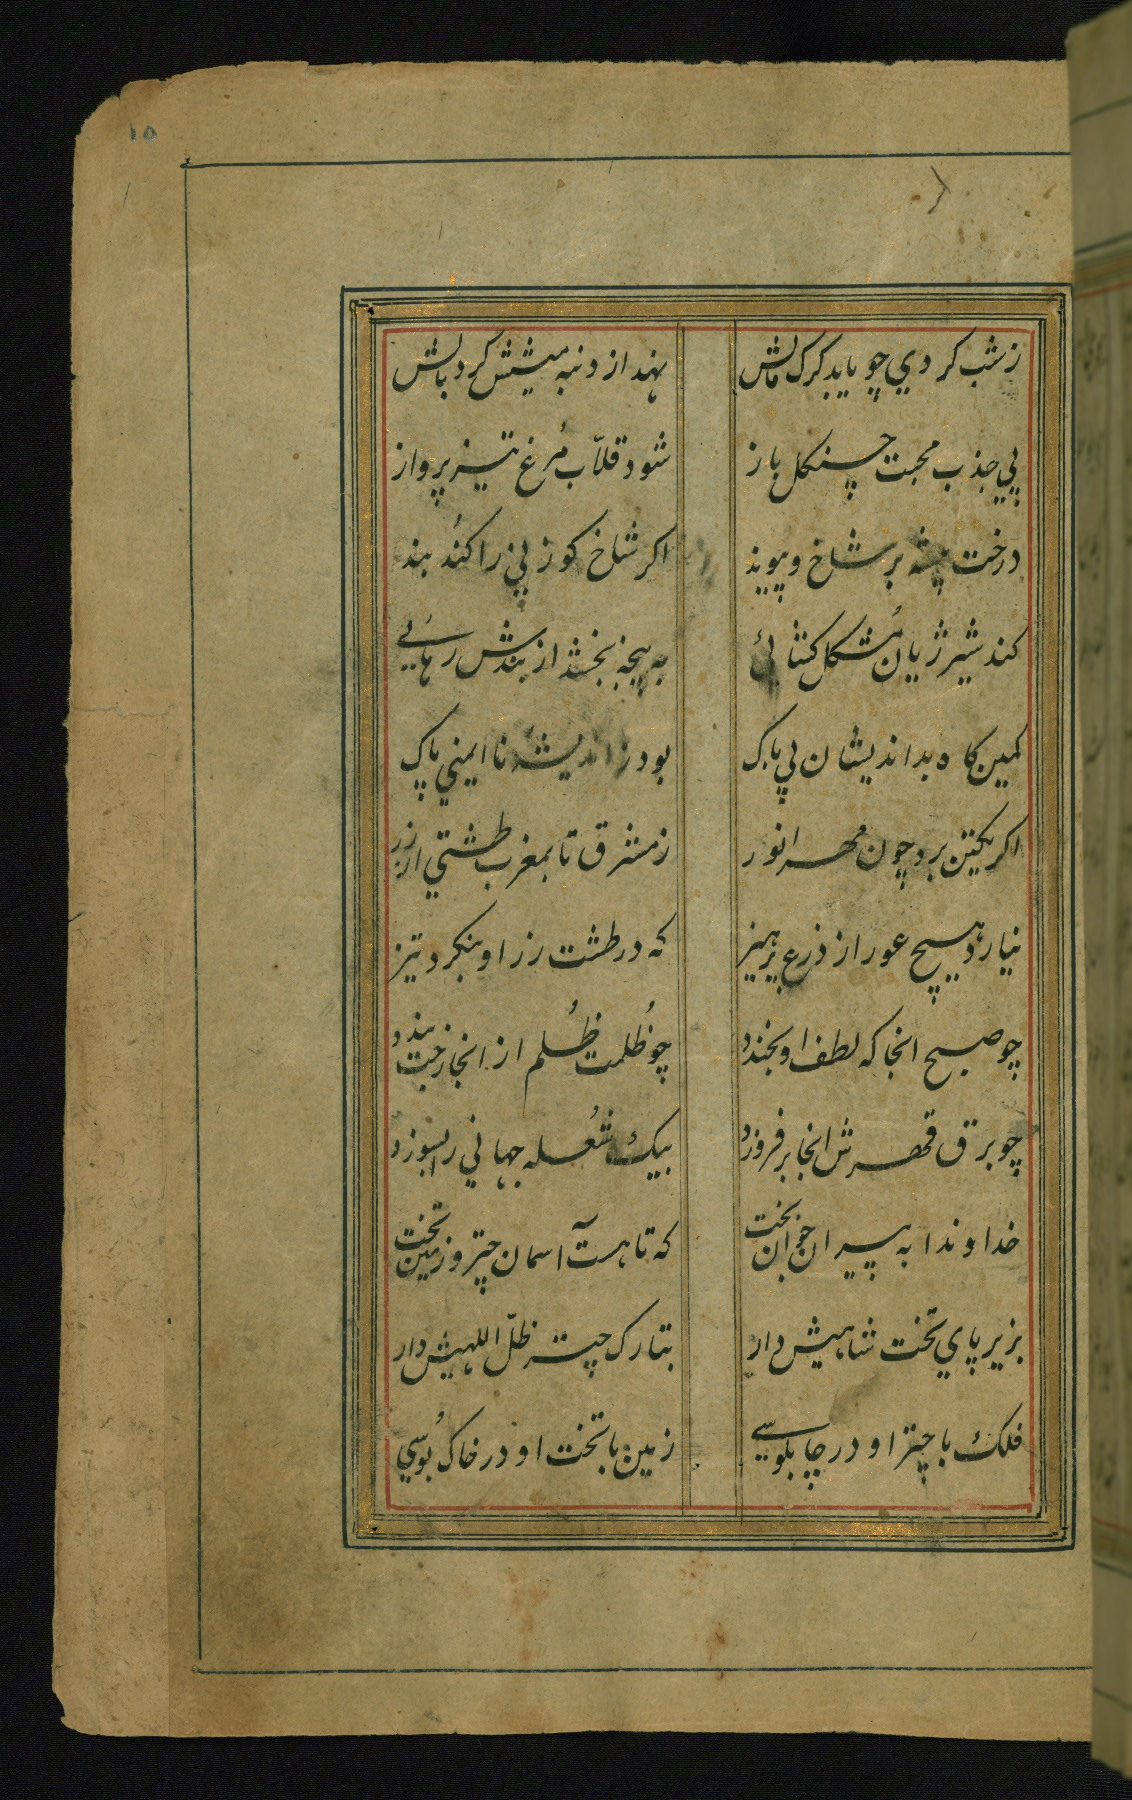 ١٥
ز شب کردی چو یابد کرک مالش نهند از دنبه میشش کرد بالش
پی جذب محبت چنکل باز شود قلّاب مُرغ تیز پرواز
درخت پیشه بر شاخ و پیوند اکر شاخ کوزنی را کنُد بند
کند شیر ژیان مُشکل کشائی به پنجه بخشد از بندش رهائی
کمین کاه بد اندیشان بی باک بود ز اندیشهٔ نا ایمنی پاک
اکر یکتن برد چون مهر انور ز مشرق تا بمغرب طشتی از زر
نیارد هیچ عور از ذرع پرهیز که در طشت زر او بنکرد تیز
چو صبح انجا که لطف او بخندد چو ظُلمت ظُلم از انجا رخت بندد
چو برق قهرش انجا بر فروزد بیک شُعله جهانی را بسوزد
خداوندا به پیران جوان بخت که تا هست آسمان چتر و زمین تخت
بزیر پای تخت شاهیش دار بتارک چتر ظلّ اللهیش دار
فلک با چتر او در چاپلوسی زمین با تخت او در خاک بُوسی